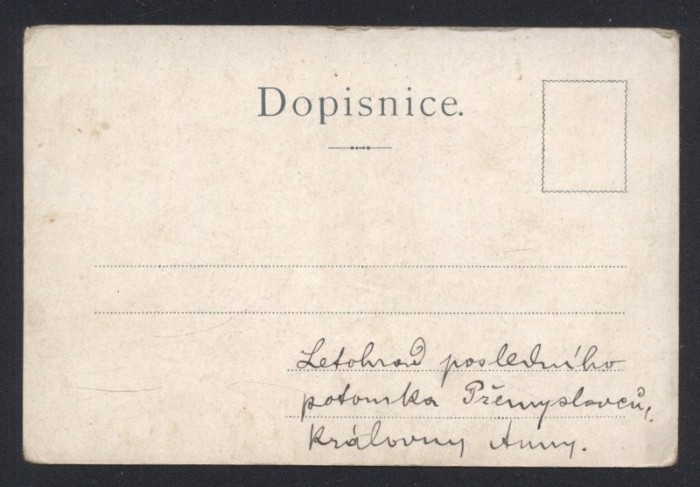 Dopisnice.
Letohrad posledního
potomka Přemyslovců,
Královny Anny.